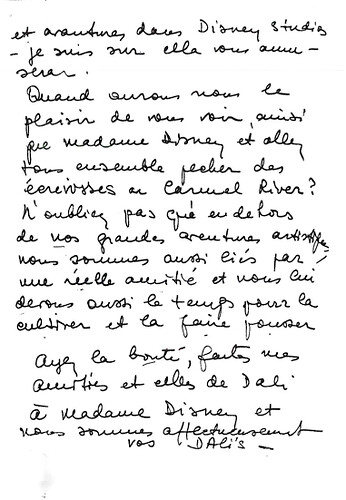 et aventures dans Disney Studios
- je suis sur ella vous amu-
seran.
Quand aurons nous le
plaisir de vous voir, ainsi
que madame Disney et aller
tous ensemble pecher des
écrevisses en Carmel River?
N'oubliez pas qué en dehors
de vos grandes aventures artistiques
nous sommes aussi liés par
une réelle amitié et nous lui
devons aussi le temps pour la
cultiver et la faire pousser
Ayez la bonté, faites mes
amitiés et celles de Dali
à madame Disney et
nous sommes affectueusement
vos DALI's -